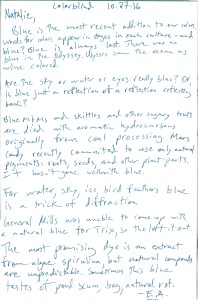 colorblind 10-27-16
Natalie,
Blue is the most recent addition to our color
words for colors appear in stages in each culture - and
blue? Blue is always last. There was no
blue in the Odyssey. Ulysses saw the ocean as
wine colored.
Are the sky or water or eyes really blue? Or
is blue just a reflection of a reflection reflecting
back?
Blue M&Ms and skittles and other sugary treats
are died with aromatic hydrocarbons
originally from coal processing. Mars
Candy recently committed to use only natural
pigments: roots, seeds, and other plant parts.
It hasn't gone well with blue.
For water, sky, ice, bird feathers blue
is a trick of diffraction.
General Mills was unable to come up with
a natural blue for Trix, so they left it out.
The most promising dye is an extract
from algae, spirulina, but natural compounds
are unpredictable. Sometimes this blue
tastes of pond scum, bog, natural rot.
E.A.